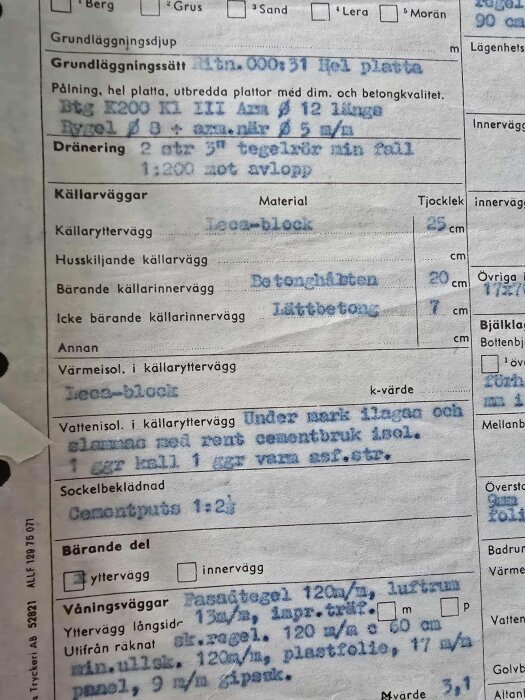 ¹ Berg ² Grus ³ Sand ⁴ Lera ⁵ Morän
90 cm
Grundläggningsdjup m
Lägenhets
Grundläggningssätt Ritn.000:31 Hel platta
Pålning, hel platta, utbredda plattor med dim. och betongkvalitet.
Btg K200 Kl III Arm Ø 12 längs
Innervägg
Bygel Ø 8 + arm.när Ø 5 m/m
Dränering 2 str 3" tegelrör min fall
1:200 mot avlopp
Källarväggar Material Tjocklek
innerväg
Källaryttervägg Leca-block 25 cm
Husskiljande källarvägg cm
Bärande källarinnervägg Betonghålsten 20 cm
Övriga
Icke bärande källarinnervägg Lättbetong 7 cm
Bjälkla
Annan cm
Bottenbj
Värmeisol. i källaryttervägg
Leca-block k-värde
Vattenisol. i källaryttervägg Under mark ilagas och
slammas med rent cementbruk isol.
1 ggr kall 1 ggr varm asf.str.
Mellanb
Sockelbeklädnad
Översto
Cementputs 1:2½
Bärande del
Badrun
yttervägg innervägg
Värme
Våningsväggar Fasadtegel 120m/m, luftrum
Yttervägg långsida 13m/m, impr.träf. m p
Vatten
Utifrån räknat sk.regel. 120 m/m c 60 cm
min.ullsk. 120m/m, plastfolie, 17 m/m
Golvb
panel, 9 m/m gipssk.
Mvärde 3,1
s Tryckeri AB 52821 ALLF 129 75 071